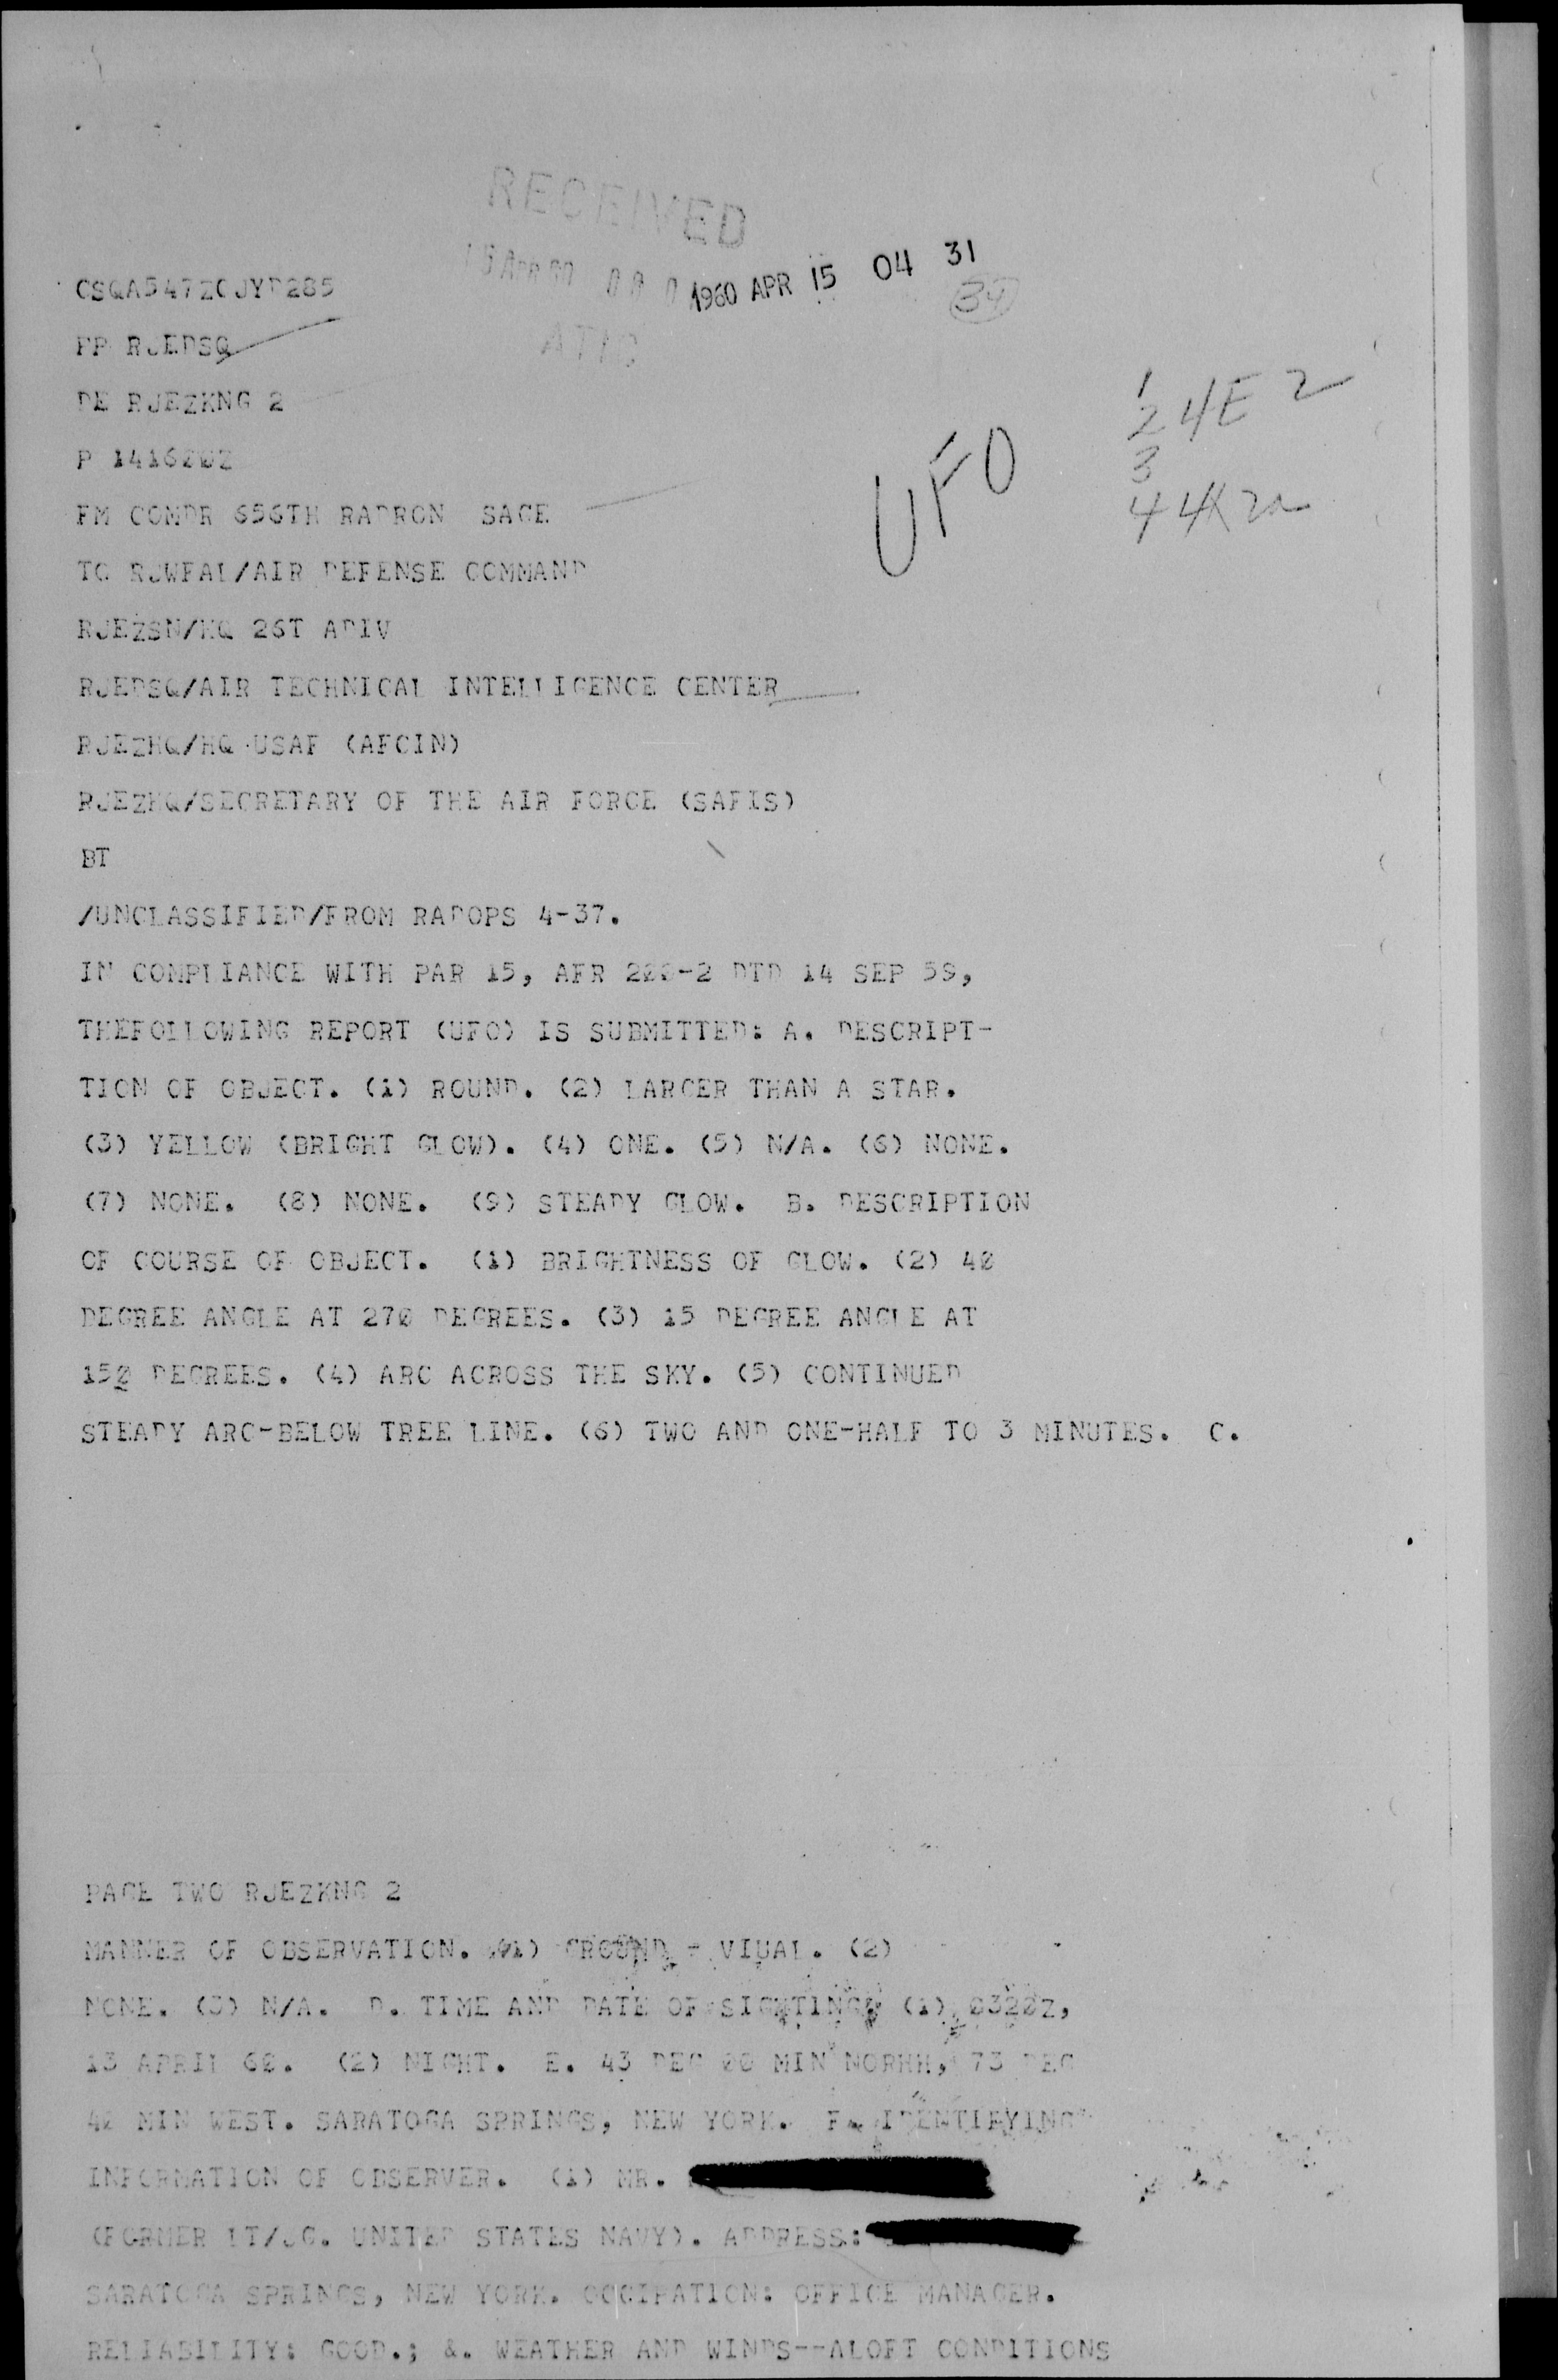 RECEIVED
1960 APR 15 04 31
34
ATIC
CSQA547ZCJYD285
PP RJEDSQ
DE RJEZKNG 2
P 141620Z
FM COMDR 656TH RADRON SAGE
TO RJWFAL/AIR DEFENSE COMMAND
RJEZSN/HQ 26T ADIV
RJEDSQ/AIR TECHNICAL INTELLIGENCE CENTER
RJEZHQ/HQ USAF (AFCIN)
RJEZHQ/SECRETARY OF THE AIR FORCE (SAFIS)
BT
UFO
1
2 4E2
3
4
/UNCLASSIFIED/FROM RADOPS 4-37.
IN COMPLIANCE WITH PAR 15, AFR 200-2 DTD 14 SEP 59,
THEFOLLOWING REPORT (UFO) IS SUBMITTED: A. DESCRIPT-
TION OF OBJECT. (1) ROUND. (2) LARGER THAN A STAR.
(3) YELLOW (BRIGHT GLOW). (4) ONE. (5) N/A. (6) NONE.
(7) NONE. (8) NONE. (9) STEADY GLOW. B. DESCRIPTION
OF COURSE OF OBJECT. (1) BRIGHTNESS OF GLOW. (2) 40
DEGREE ANGLE AT 270 DEGREES. (3) 15 DEGREE ANGLE AT
150 DEGREES. (4) ARC ACROSS THE SKY. (5) CONTINUED
STEADY ARC-BELOW TREE LINE. (6) TWO AND ONE-HALF TO 3 MINUTES. C.
PAGE TWO RJEZKNG 2
MANNER OF OBSERVATION. 01) GROUND - VIUAL. (2)
NONE. (3) N/A. D. TIME AND DATE OF SIGHTING (1) 0320Z,
13 APRIL 60. (2) NIGHT. E. 43 DEG 00 MIN NORHH, 73 DEG
40 MIN WEST. SARATOGA SPRINGS, NEW YORK. F. IDENTIFYING
INFORMATION OF OBSERVER. (1) MR.
(FORMER LT/JG. UNITED STATES NAVY). ADDRESS:
SARATOGA SPRINGS, NEW YORK. OCCIPATION: OFFICE MANAGER.
RELIABILITY: GOOD.; &. WEATHER AND WINDS--ALOFT CONDITIONS